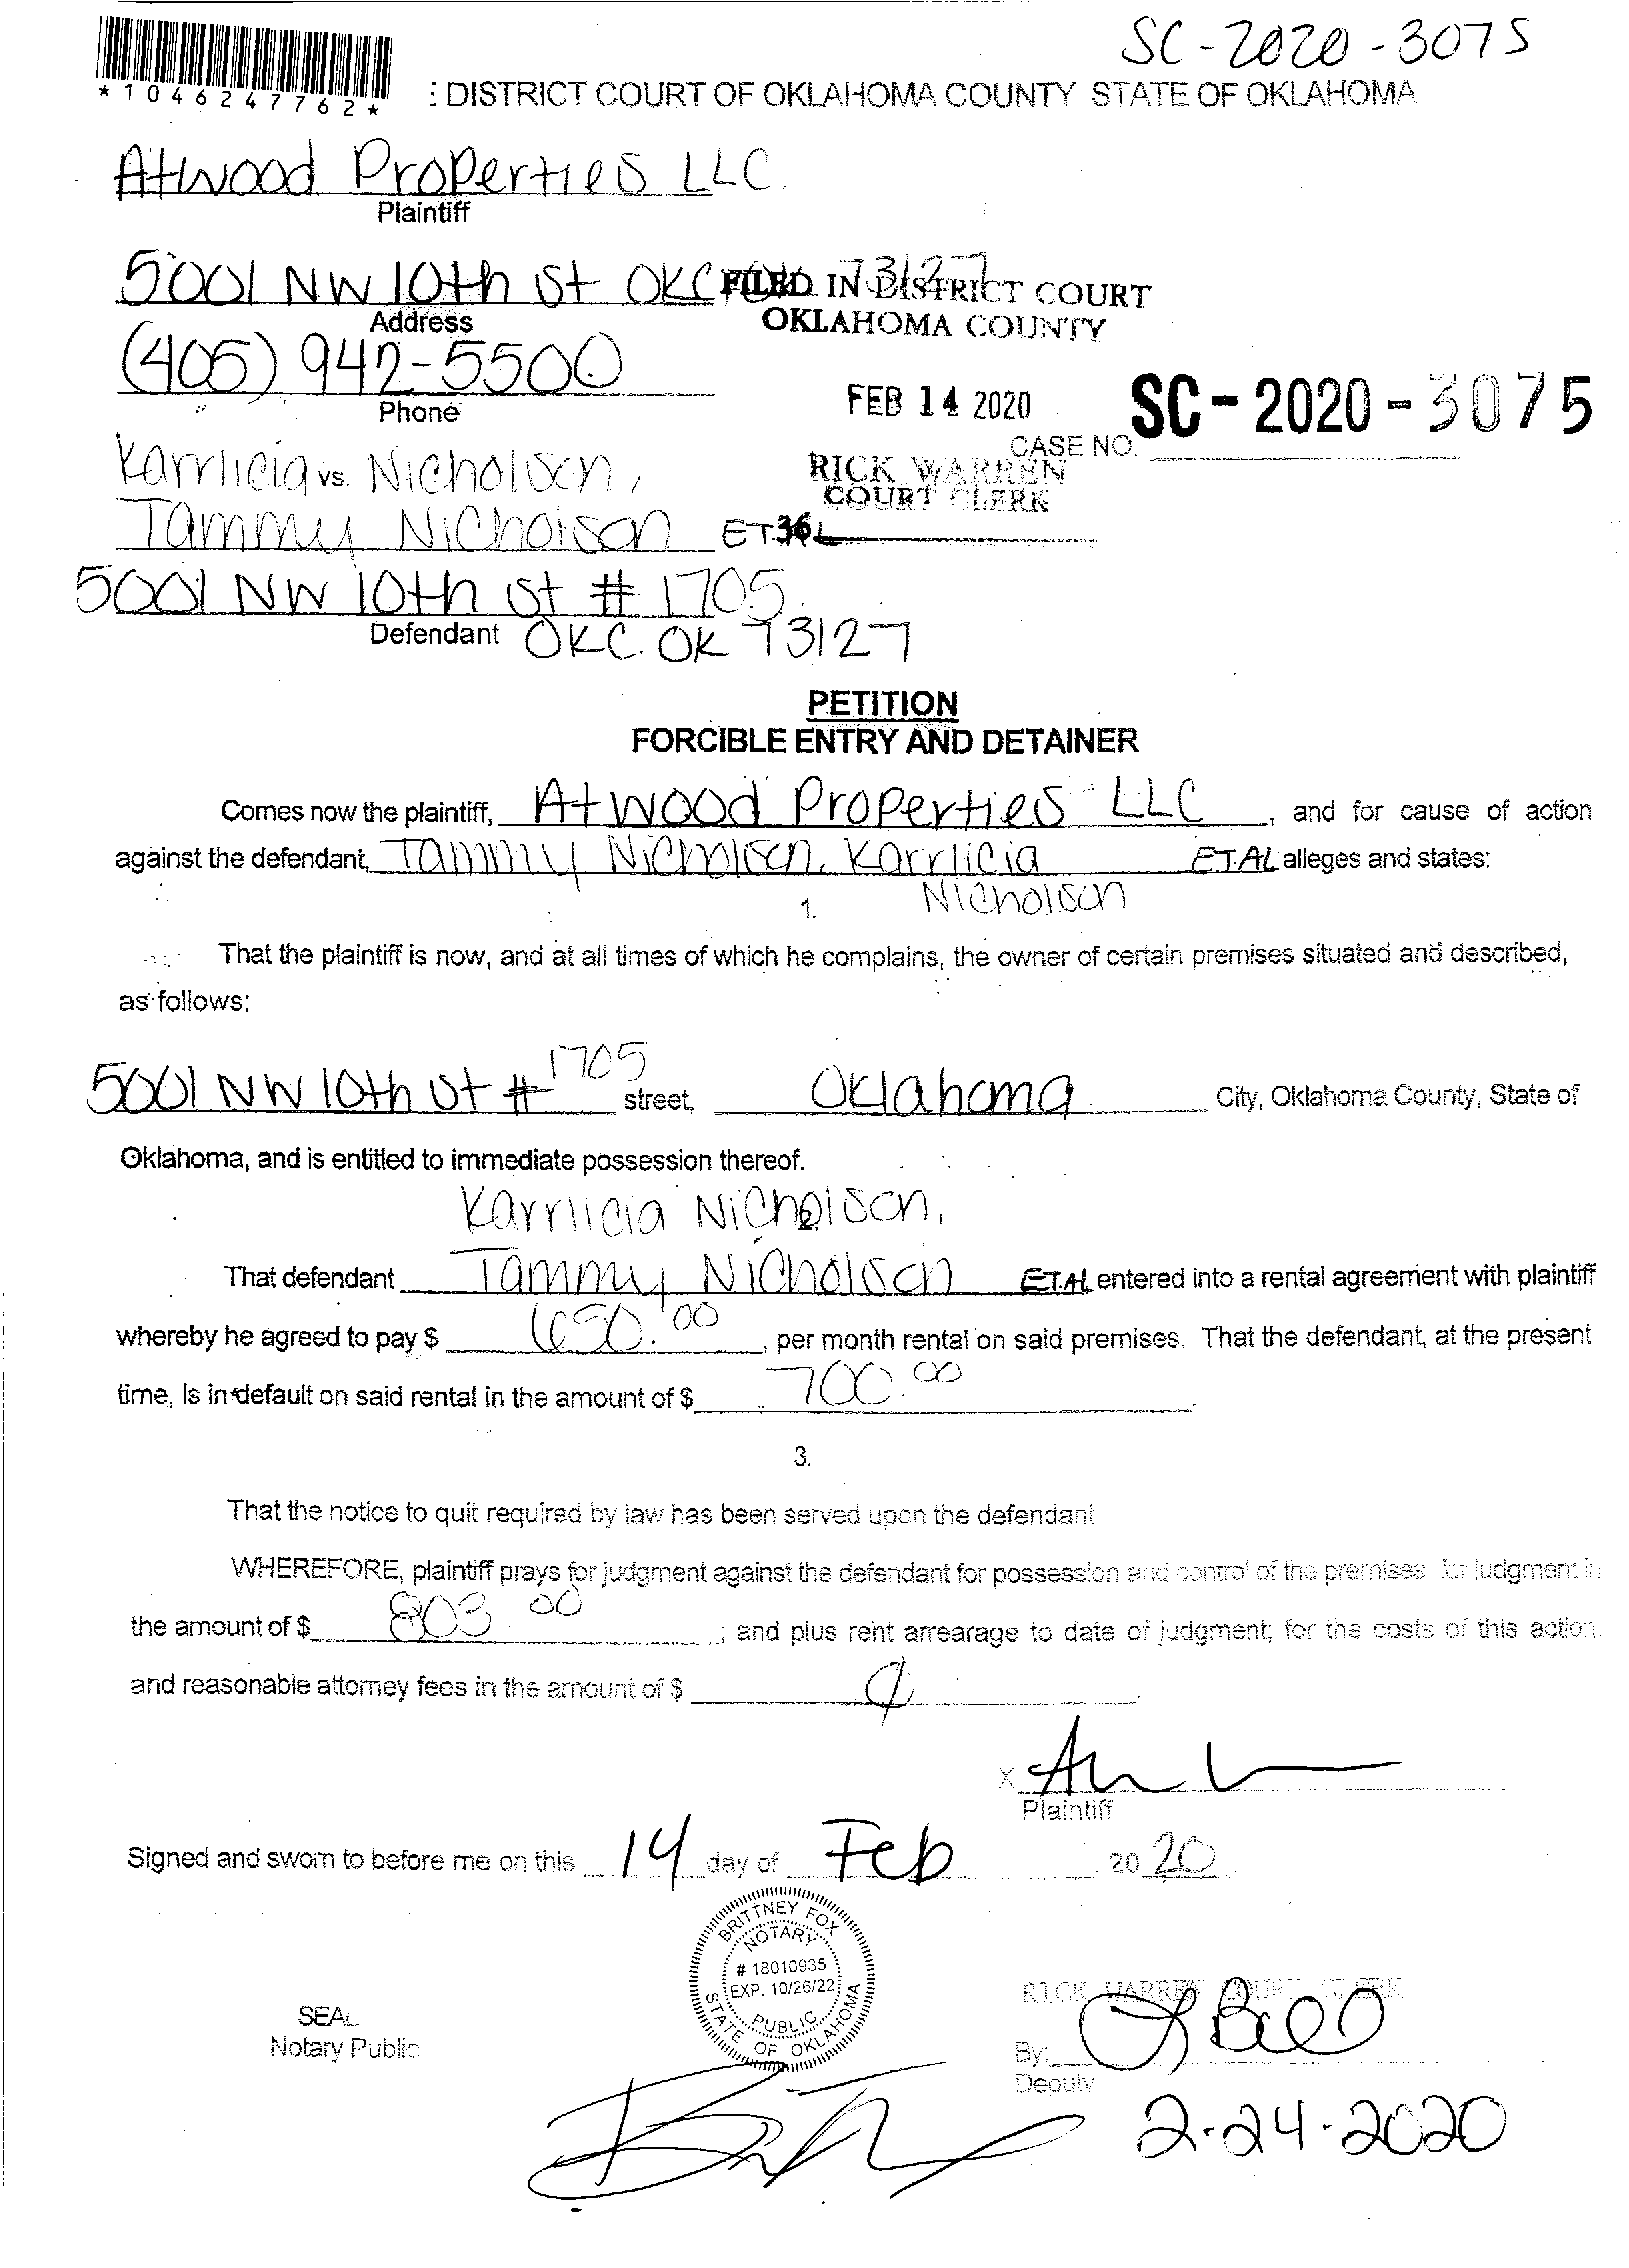 SC-2020-3075
*1046247762*
: DISTRICT COURT OF OKLAHOMA COUNTY STATE OF OKLAHOMA
Atwood Properties LLC.
Plaintiff
5001 NW 10th St OKC OK 73127
FILED IN DISTRICT COURT
Address
OKLAHOMA COUNTY
(405) 942-5500
Phone
FEB 14 2020
SC-2020-3075
CASE NO.
Karrlicia vs. Nicholson,
RICK WARREN
COURT CLERK
Tammy Nicholson ET.AL
36
5001 NW 10th St # 1705
Defendant OKC. OK 73127
PETITION
FORCIBLE ENTRY AND DETAINER
Comes now the plaintiff, Atwood Properties LLC, and for cause of action
against the defendant, Tammy Nicholson, Karrlicia ET.AL alleges and states:
Nicholson
1.
That the plaintiff is now, and at all times of which he complains, the owner of certain premises situated and described,
as follows:
5001 NW 10th St # 1705 street, Oklahoma City, Oklahoma County, State of
Oklahoma, and is entitled to immediate possession thereof.
Karrlicia Nicholson,
That defendant Tammy Nicholson ET.AL entered into a rental agreement with plaintiff
whereby he agreed to pay $ 650.00, per month rental on said premises. That the defendant, at the present
time, is in default on said rental in the amount of $ 700.00
3.
That the notice to quit required by law has been served upon the defendant
WHEREFORE, plaintiff prays for judgment against the defendant for possession and control of the premises for judgment in
the amount of $ 803 00; and plus rent arrearage to date of judgment; for the costs of this action
and reasonable attorney fees in the amount of $
X
Plaintiff
Signed and sworn to before me on this 14 day of Feb 2020
BRITTNEY FOX
NOTARY
# 18010935
EXP. 10/26/22
PUBLIC
STATE OF OKLAHOMA
SEAL
Notary Public
RICK WARREN COURT CLERK
By:
Deputy
2-24-2020